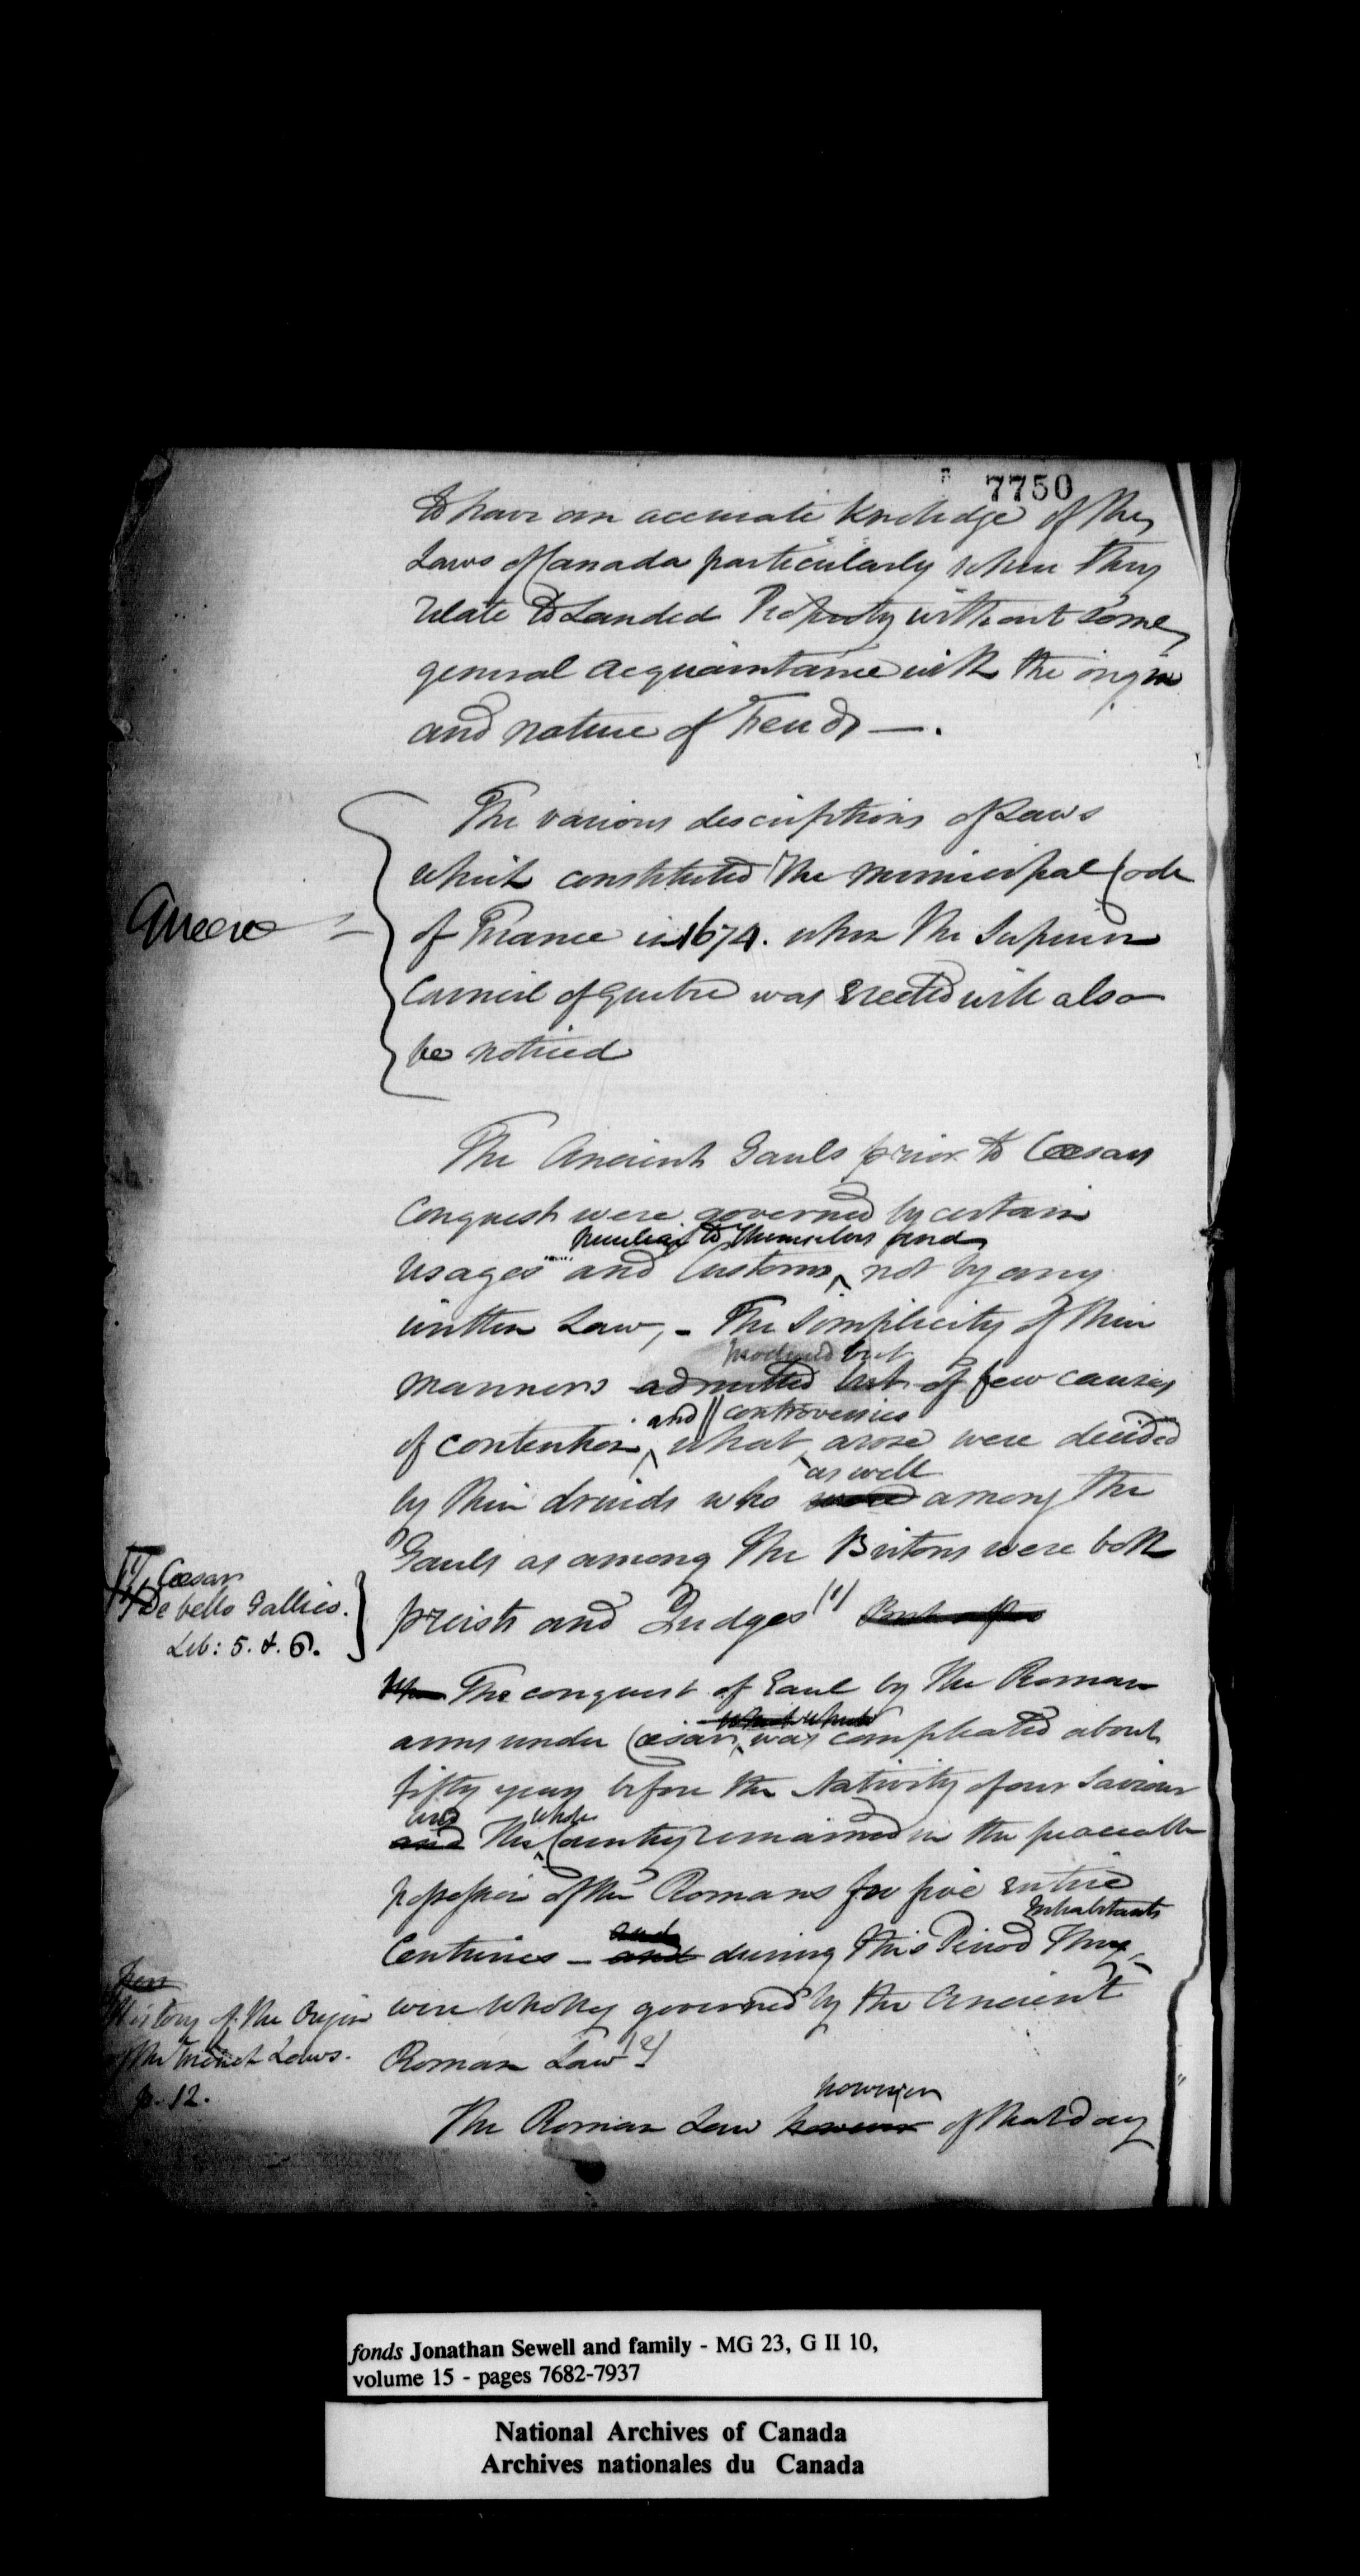 7750
To have an accurate knowledge of the
Laws of Canada particularly when they
relate to Landed Property without some
general acquaintance with the origin
and nature of Feuds —.
The various descriptions of Laws
which constituted the municipal Code
of France in 1674. when the Superior
Council of Quebec was Erected will also
be noticed
The Ancient Gauls prior to Cæsars
Conquest were governed by certain
peculiar to themselves and
usages and Customs ^ not by any
written Law, - The Simplicity of their
produced but
manners admitted but of few causes
and controversies
of contention ^ what ^ arose were decided
as well
by their druids who were among the
Gauls as among the Britons were both
(1) Cæsar
De bello Gallico.
Lib: 5. & 6.
preists and Judges (1)
The conquest of Gaul by the Roman
which
arms under Cæsar ^ was compleated about
fifty years before the Nativity of our Saviour
and whole
and The ^ Country remained in the peaceable
possession of the Romans for five entire
Inhabitants
and
Centuries — and during this Period They
History of the Origin
of the French Laws.
p. 12.
were wholly governed by the Ancient
Roman Law (2)
however
The Roman Law however of that day
fonds Jonathan Sewell and family - MG 23, G II 10,
volume 15 - pages 7682-7937
National Archives of Canada
Archives nationales du Canada